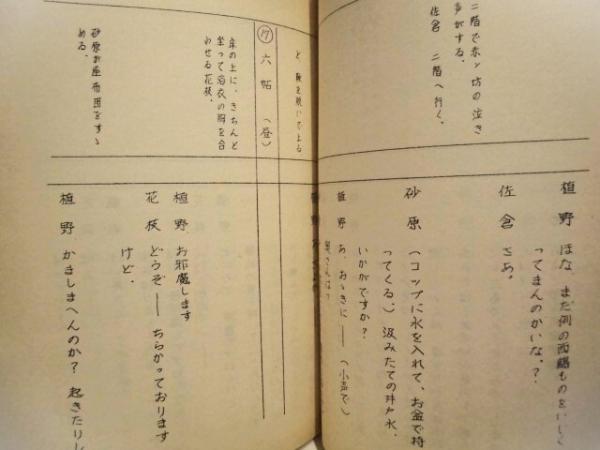 二階で赤ン坊の泣き
声がする。
佐倉 二階へ行く。
植野 ほな、まだ例の西鶴ものをいじく
ってまんのかいな。?
佐倉 さあ。
砂原 (コップに水を入れて、お盆で持
ってくる。) 汲みたての井戸水、
いかがですか?
植野 あ、おゝきに── (小声で)
奥さんは?
と、腕を
⑰ 六帖 (昼)
床の上に、きちんと
坐って浴衣の胸を合
わせる花枝。
砂原お座布団をすゝ
める。
植野 お邪魔します
花枝 どうぞ── ちらかっております
けど。
植野 かましまへんのか? 起きたりし